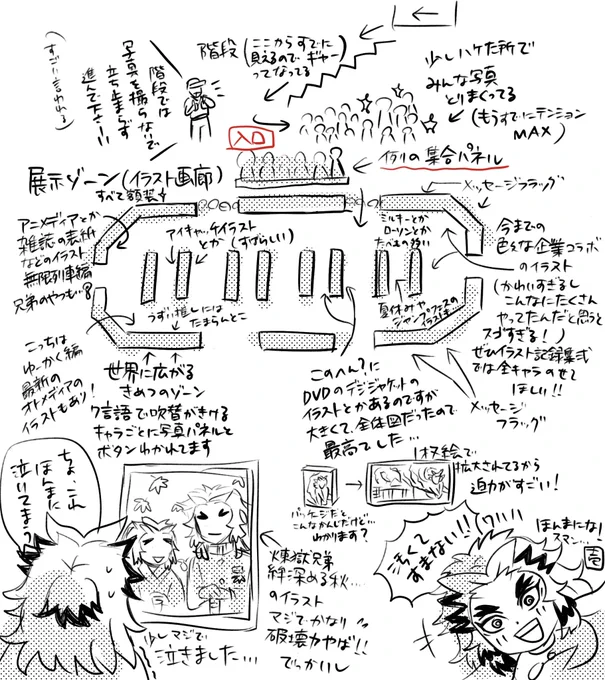 階段
(ここからすでに
見えるのでギャー
ってなってる
階段では
写真を撮らないで
立ち止まらず
進んで下さい
(すごい言われる)
少しハケた所で
みんな写真
とりまくってる
(もうすでにテンション
MAX)
入口
例の集合パネル
展示ゾーン(イラスト画廊)
すべて額装
メッセージフラッグ
アニメディアとか
雑誌の表紙
などのイラスト
無限列車編
兄弟のやつも…
アイキャッチイラスト
とか(すばらしい)
ミルキーとか
ローソンとか
たべもの強い
今までの
色んな企業コラボ
のイラスト
(かわいすぎるし
こんなにたくさん
やってたんだと思うと
スゴすぎる!)
ぜひイラスト記録集式
では全キャラのせて
ほしい!!
うずい推しには
たまらんとこ
夏休みや
ジャンプフェスの
イラストも…
こっちは
ゆーかく編
最新の
オトメディアの
イラストもあり!
世界に広がる
きめつのゾーン
7言語で吹替がきける
キャラごとに写真パネルと
ボタンわかれてます
このへん?に
DVDのデジジャケットの
イラストとかあるのですが
大きくて、全体図だったので
最高でした…
メッセージ
フラッグ
1枚絵で
拡大されてるから
迫力がすごい!
パッケージだと
こんなかんじだけど…
わかります?
ちょ、これ
ほんまに
泣いてまう
煉獄兄弟
絆深める秋…
のイラスト
マジでかなり
破壊力やば!!
でっかいし
少しマジで
泣きました…
汚くて
すまない!!
ワハハ
ほんまになー
スマン…
壱